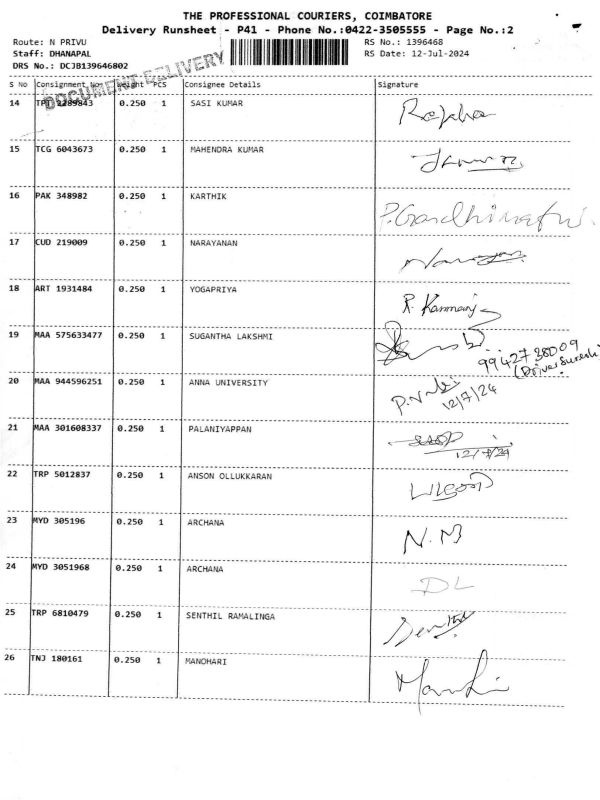 THE PROFESSIONAL COURIERS, COIMBATORE
Delivery Runsheet - P41 - Phone No.:0422-3505555 - Page No.:2
Route: N PRIVU RS No.: 1396468
Staff: DHANAPAL RS Date: 12-Jul-2024
DRS No.: DCJB139646802
DOCUMENT DELIVERY
S No Consignment No Weight PCS Consignee Details Signature
14 2289843 0.250 1 SASI KUMAR
15 TCG 6043673 0.250 1 MAHENDRA KUMAR
16 PAK 348982 0.250 1 KARTHIK P.Gandhimathi.
17 CUD 219009 0.250 1 NARAYANAN Narayanan
18 ART 1931484 0.250 1 YOGAPRIYA R. Kanmani
19 MAA 575633477 0.250 1 SUGANTHA LAKSHMI
9942738009
(Driver Suresh)
20 MAA 944596251 0.250 1 ANNA UNIVERSITY
12/7/24
21 MAA 301608337 0.250 1 PALANIYAPPAN
12/7/24
22 TRP 5012837 0.250 1 ANSON OLLUKKARAN
23 MYD 305196 0.250 1 ARCHANA N.M
24 MYD 3051968 0.250 1 ARCHANA DL
25 TRP 6810479 0.250 1 SENTHIL RAMALINGA Senthil
26 TNJ 180161 0.250 1 MANOHARI